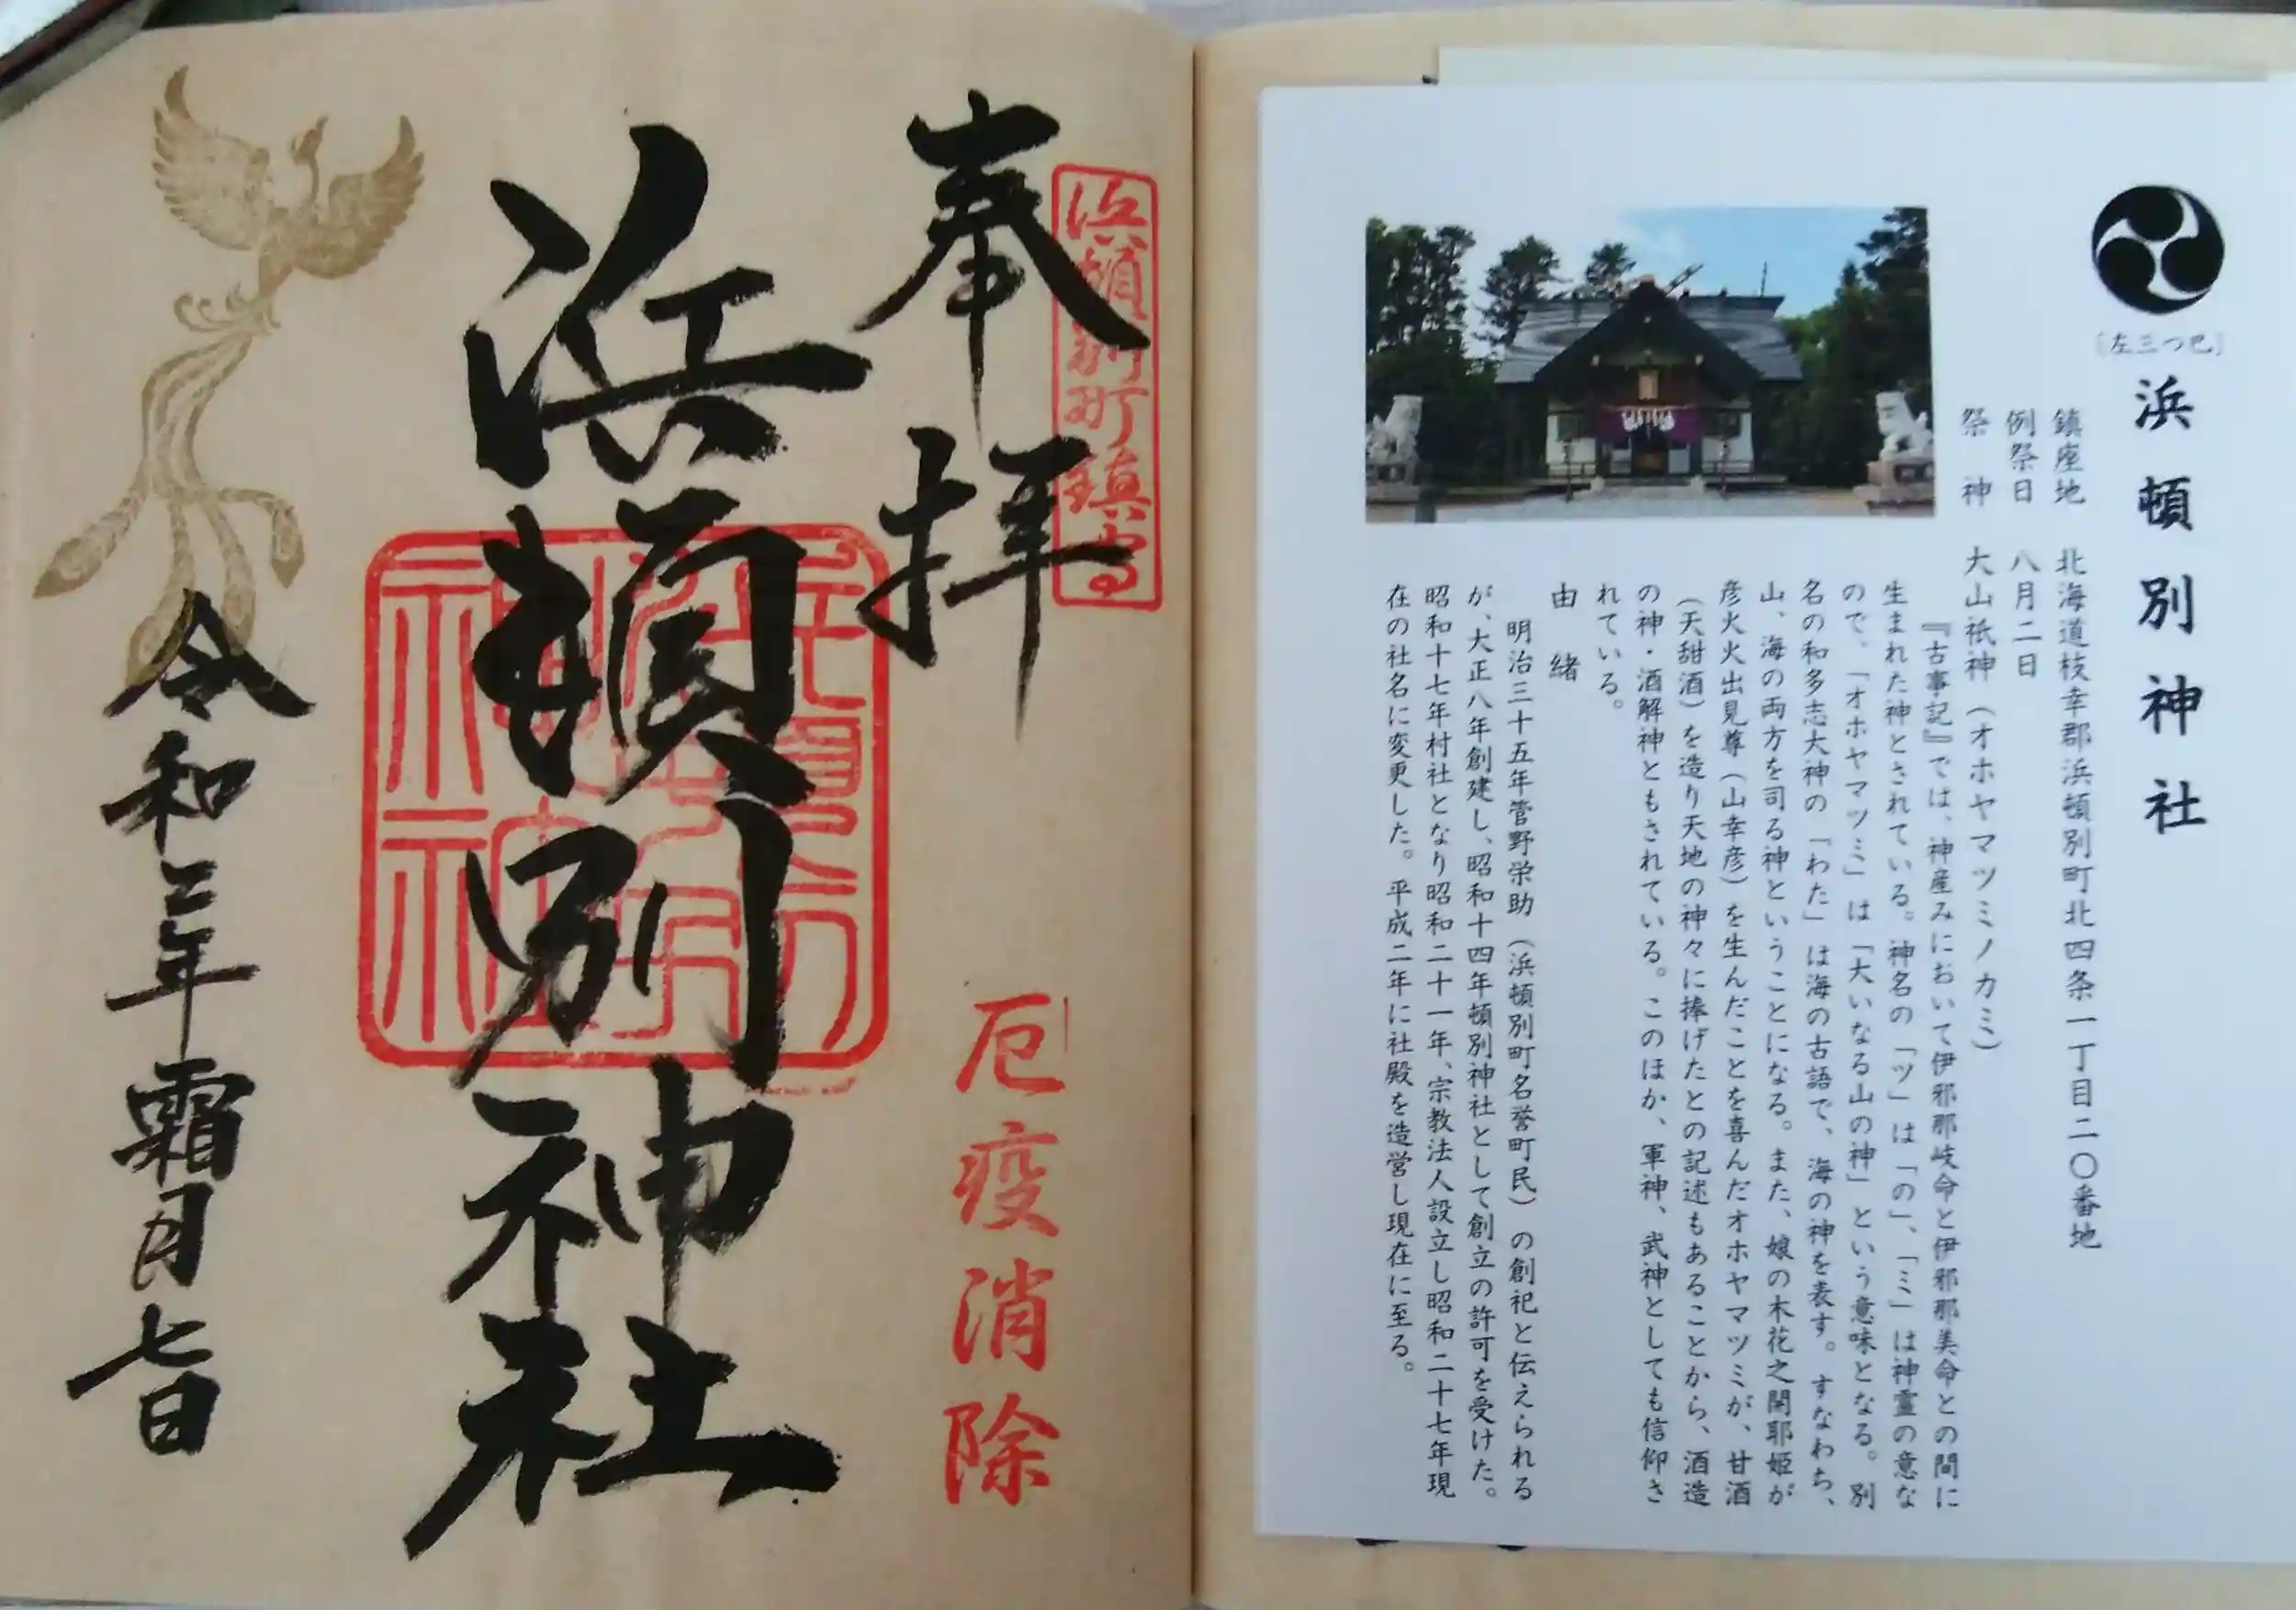 〔左三つ巴〕
浜頓別神社
鎮座地 北海道枝幸郡浜頓別町北四条一丁目二〇番地
例祭日 八月二日
祭神 大山祇神（オホヤマツミノカミ）
『古事記』では、神産みにおいて伊邪那岐命と伊邪那美命との間に
生まれた神とされている。神名の「ツ」は「の」、「ミ」は神霊の意な
ので、「オホヤマツミ」は「大いなる山の神」という意味となる。別
名の和多志大神の「わた」は海の古語で、海の神を表す。すなわち、
山、海の両方を司る神ということになる。また、娘の木花之開耶姫が
彦火火出見尊（山幸彦）を生んだことを喜んだオホヤマツミが、甘酒
（天甜酒）を造り天地の神々に捧げたとの記述もあることから、酒造
の神・酒解神ともされている。このほか、軍神、武神としても信仰さ
れている。
由緒
明治三十五年菅野栄助（浜頓別町名誉町民）の創祀と伝えられる
が、大正八年創建し、昭和十四年頓別神社として創立の許可を受けた。
昭和十七年村社となり昭和二十一年、宗教法人設立し昭和二十七年現
在の社名に変更した。平成二年に社殿を造営し現在に至る。
浜頓別町鎮守
奉拝
厄疫消除
浜頓別神社
令和二年霜月七日